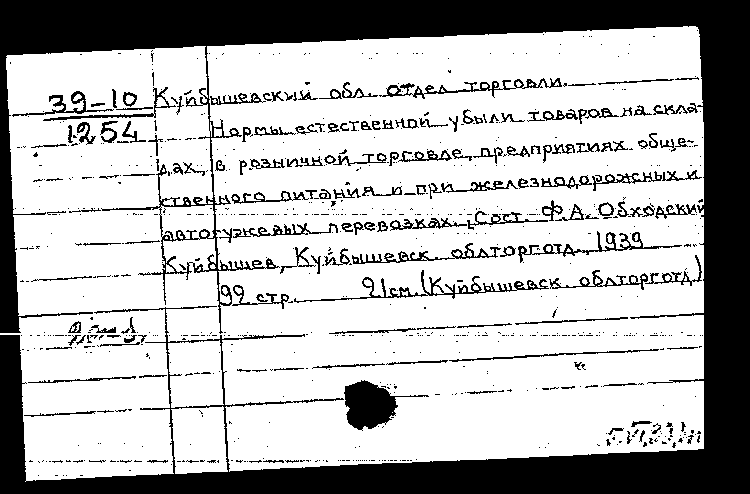 39-10 Куйбышевский обл. отдел торговли.
1254 Нормы естественной убыли товаров на скла-
дах, в розничной торговле, предприятиях обще-
ственного питания и при железнодорожных и
автогужевых перевозках. Сост. Ф.А. Обходский
Куйбышев, Куйбышевск. облторготд., 1939
92 стр. 21см. (Куйбышевск. облторготд.)